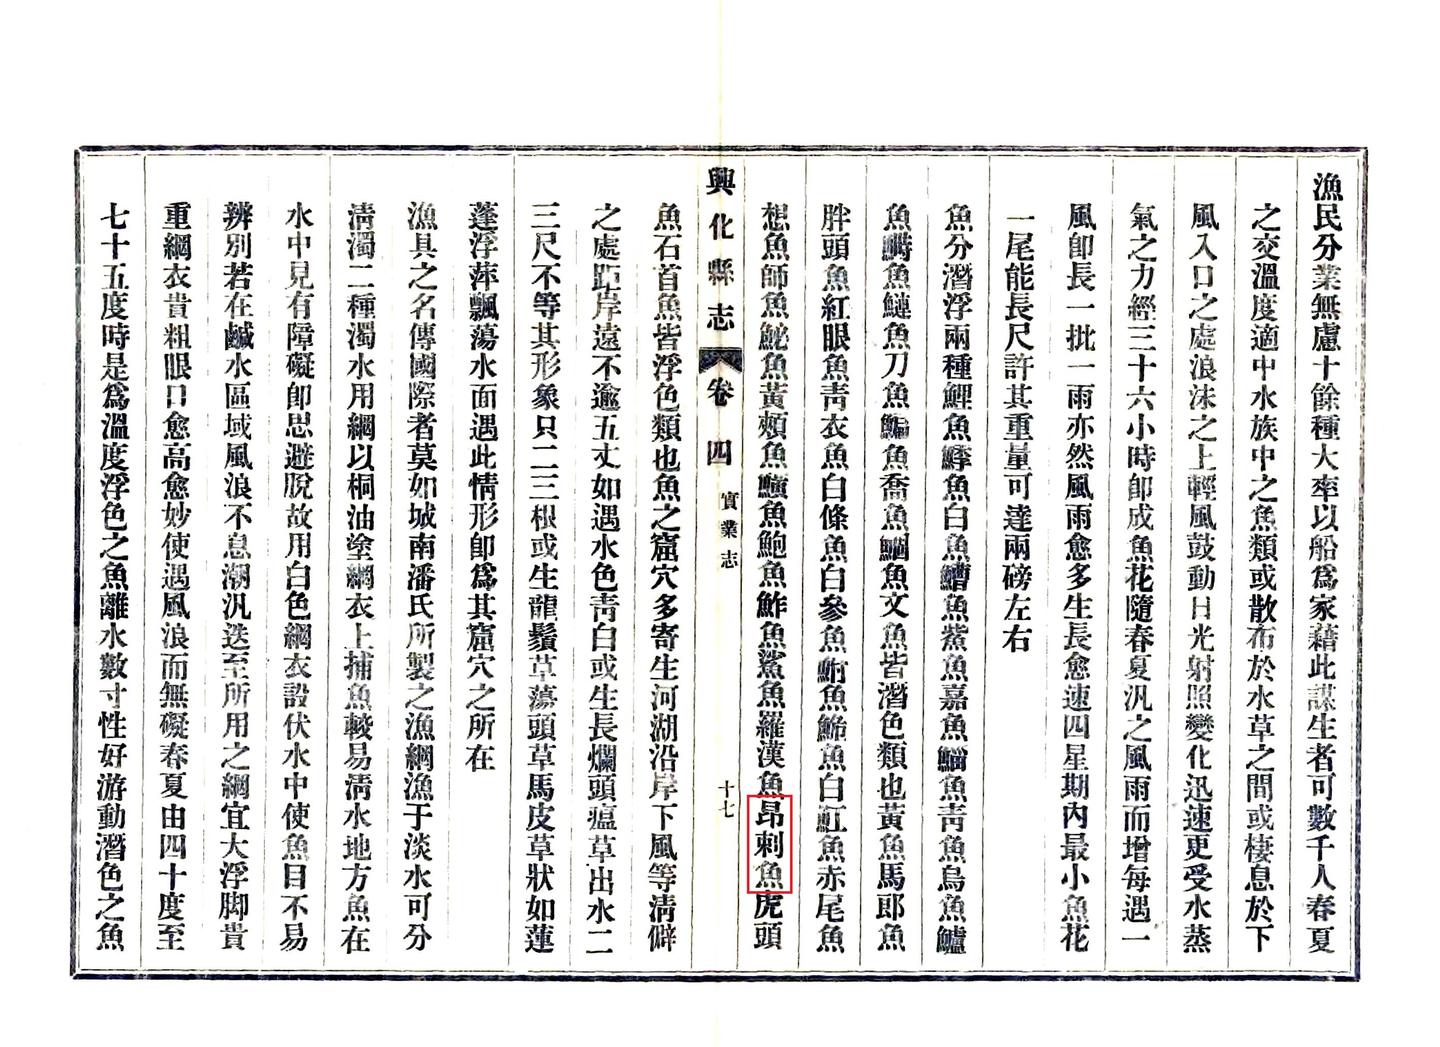 漁民分業無慮十餘種大率以船爲家藉此謀生者可數千人春夏
之交溫度適中水族中之魚類或散布於水草之間或棲息於下
風入口之處浪沫之上輕風鼓動日光射照變化迅速更受水蒸
氣之力經三十六小時卽成魚花隨春夏汛之風雨而增每遇一
風卽長一批一雨亦然風雨愈多生長愈速四星期內最小魚花
一尾能長尺許其重量可達兩磅左右
魚分潛浮兩種鯉魚鯚魚白魚鰽魚鮆魚嘉魚鯔魚靑魚烏魚鱸
魚鱘魚鰱魚刀魚鯿魚喬魚鯝魚文魚皆潛色類也黃魚馬郎魚
胖頭魚紅眼魚靑衣魚白條魚白參魚鮒魚鯑魚白魟魚赤尾魚
想魚師魚魮魚黃頰魚鱝魚鮑魚鮓魚鯊魚羅漢魚昂刺魚虎頭
興化縣志 卷四 實業志 十七
魚石首魚皆浮色類也魚之窟穴多寄生河湖沿岸下風等淸僻
之處距岸遠不逾五丈如遇水色靑白或生長爛頭瘟草出水二
三尺不等其形象只二三根或生龍鬚草蕩頭草馬皮草狀如蓮
蓬浮萍飄蕩水面遇此情形卽爲其窟穴之所在
漁具之名傳國際者莫如城南潘氏所製之漁網漁于淡水可分
淸濁二種濁水用網以桐油塗網衣上捕魚較易淸水地方魚在
水中見有障礙卽思避脫故用白色網衣設伏水中使魚目不易
辨別若在鹹水區域風浪不息潮汛迭至所用之網宜大浮脚貴
重網衣貴粗眼口愈高愈妙使遇風浪而無礙春夏由四十度至
七十五度時是爲溫度浮色之魚離水數寸性好游動潛色之魚